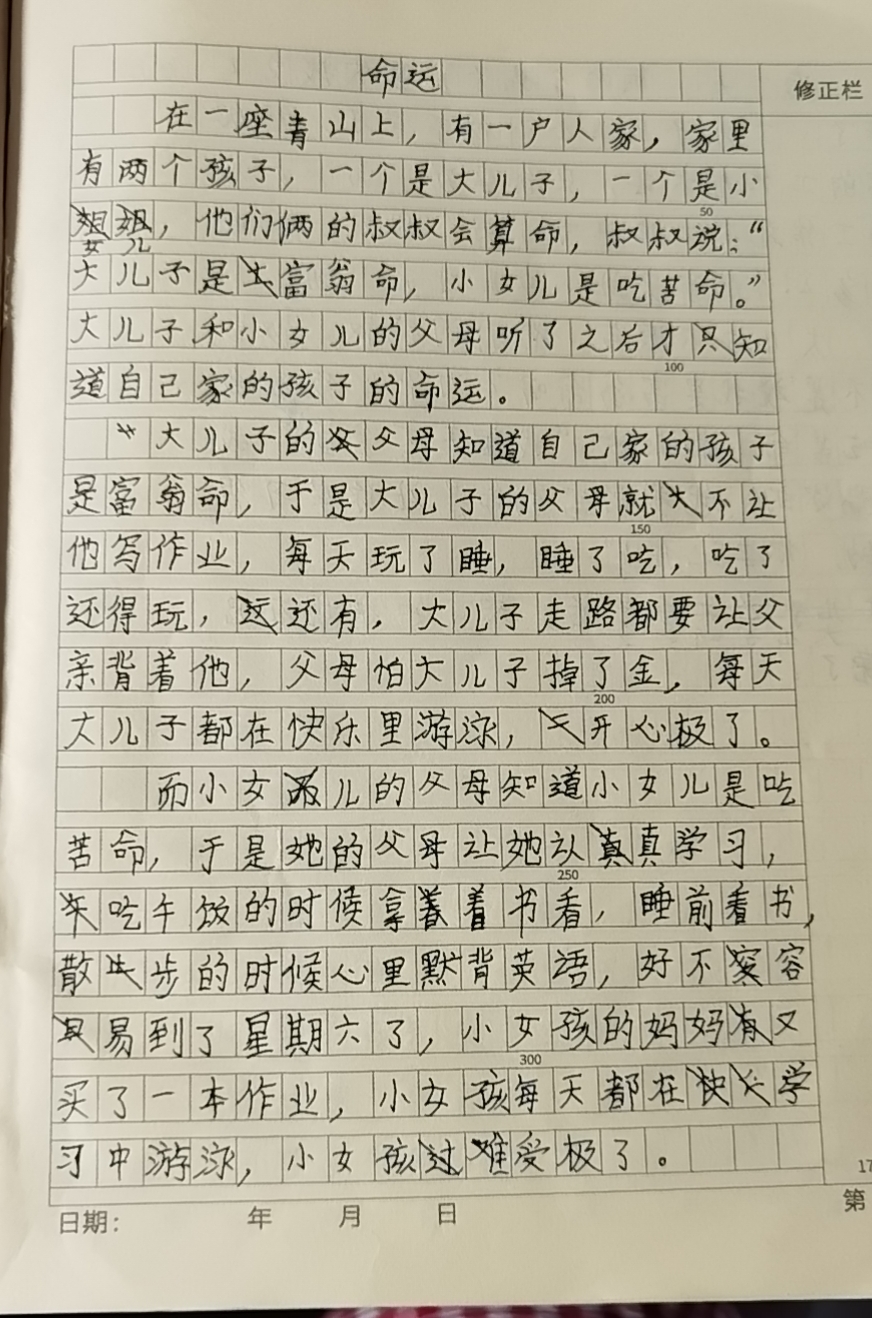 命运
修正栏
在一座青山上，有一户人家，家里
有两个孩子，一个是大儿子，一个是小
女儿，他们俩的叔叔会算命，叔叔说：“
50
大儿子是富翁命，小女儿是吃苦命。”
大儿子和小女儿的父母听了之后才知
100
道自己家的孩子的命运。
大儿子的父母知道自己家的孩子
是富翁命，于是大儿子的父母就不让
150
他写作业，每天玩了睡，睡了吃，吃了
还得玩，还有，大儿子走路都要让父
亲背着他，父母怕大儿子掉了金，每天
200
大儿子都在快乐里游泳，开心极了。
而小女儿的父母知道小女儿是吃
苦命，于是她的父母让她认真学习，
250
吃午饭的时候拿着书看，睡前看书，
散步的时候心里默背英语，好不容
易到了星期六了，小女孩的妈妈又
300
买了一本作业，小女孩每天都在学
习中游泳，小女孩难受极了。
17
日期： 年 月 日
第